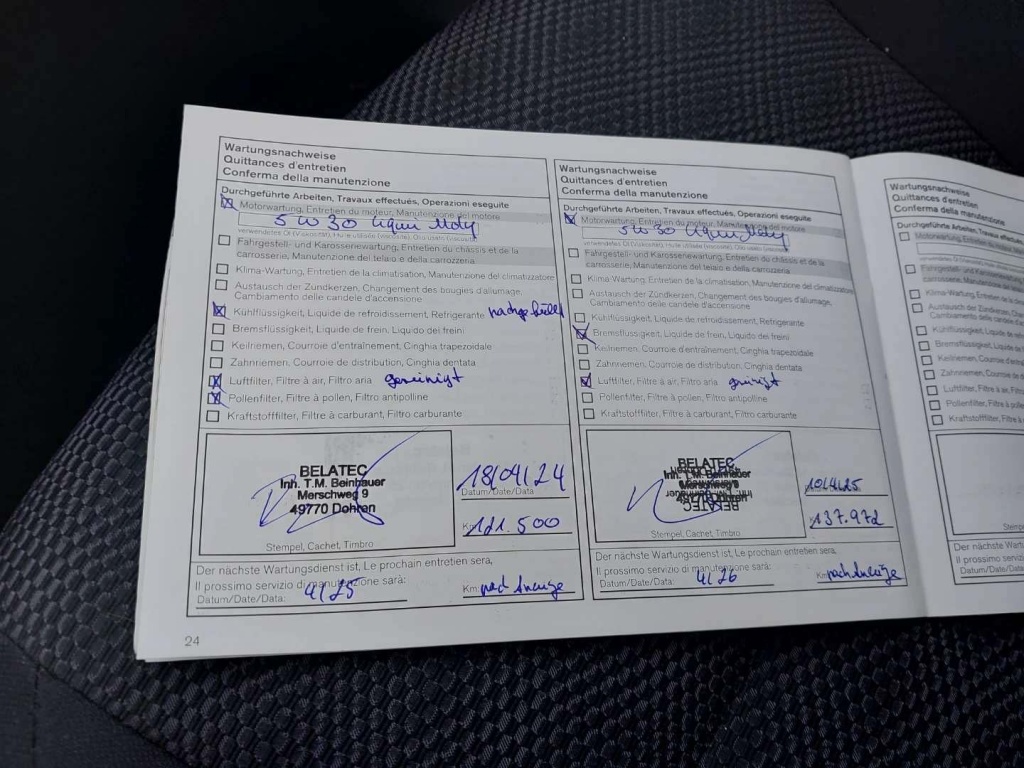 Wartungsnachweise
Quittances d'entretien
Conferma della manutenzione
Durchgeführte Arbeiten, Travaux effectués, Operazioni eseguite
Motorwartung, Entretien du moteur, Manutenzione del motore
5W30 Liqui Moly
verwendetes Öl (Viskosität), Huile utilisée (viscosité), Olio usato (viscosità)
Fahrgestell- und Karossenewartung, Entretien du châssis et de la
carrosserie, Manutenzione del telaio e della carrozzeria
Klima-Wartung, Entretien de la climatisation, Manutenzione del climatizzatore
Austausch der Zündkerzen, Changement des bougies d'allumage,
Cambiamento delle candele d'accensione
Kühlflüssigkeit, Liquide de refroidissement, Refrigerante nachgefüllt
Bremsflüssigkeit, Liquide de frein, Liquido dei freini
Keilriemen, Courroie d'entraînement, Cinghia trapezoidale
Zahnriemen, Courroie de distribution, Cinghia dentata
Luftfilter, Filtre à air, Filtro aria gereinigt
Pollenfilter, Filtre à pollen, Filtro antipolline
Kraftstofffilter, Filtre à carburant, Filtro carburante
BELATEC
Inh. T.M. Beinhauer
Merschweg 9
49770 Dohren
Stempel, Cachet, Timbro
18/04/24
Datum/Date/Data
Km 121.500
Der nächste Wartungsdienst ist, Le prochain entretien sera,
Il prossimo servizio di manutenzione sarà:
Datum/Date/Data: 4/25 Km: nach Anzeige
24
Wartungsnachweise
Quittances d'entretien
Conferma della manutenzione
Durchgeführte Arbeiten, Travaux effectués, Operazioni eseguite
Motorwartung, Entretien du moteur, Manutenzione del motore
5W30 Liqui Moly
verwendetes Öl (Viskosität), Huile utilisée (viscosité), Olio usato (viscosità)
Fahrgestell- und Karossenewartung, Entretien du châssis et de la
carrosserie, Manutenzione del telaio e della carrozzeria
Klima-Wartung, Entretien de la climatisation, Manutenzione del climatizzatore
Austausch der Zündkerzen, Changement des bougies d'allumage,
Cambiamento delle candele d'accensione
Kühlflüssigkeit, Liquide de refroidissement, Refrigerante
Bremsflüssigkeit, Liquide de frein, Liquido dei freini
Keilriemen, Courroie d'entraînement, Cinghia trapezoidale
Zahnriemen, Courroie de distribution, Cinghia dentata
Luftfilter, Filtre à air, Filtro aria gereinigt
Pollenfilter, Filtre à pollen, Filtro antipolline
Kraftstofffilter, Filtre à carburant, Filtro carburante
BELATEC
Inh. T.M. Beinhauer
Merschweg 9
49770 Dohren
BELATEC
Stempel, Cachet, Timbro
10/4/25
137.972
Der nächste Wartungsdienst ist, Le prochain entretien sera,
Il prossimo servizio di manutenzione sarà:
Datum/Date/Data: 4/26 Km: nach Anzeige
Wartungsnachweise
Quittances d'entretien
Conferma della manutenzione
Durchgeführte Arbeiten, Travaux
Motorwartung, Entretien du
Fahrgestell- und
carrosserie, Manutenzione
Klima-Wartung, Entretien
Austausch der Zündkerzen
Cambiamento delle candele
Kühlflüssigkeit, Liquide
Bremsflüssigkeit,
Keilriemen, Courroie
Zahnriemen, Courroie
Luftfilter, Filtre à
Pollenfilter, Filtre
Kraftstofffilter,
Der nächste
Il prossimo
Datum/Date